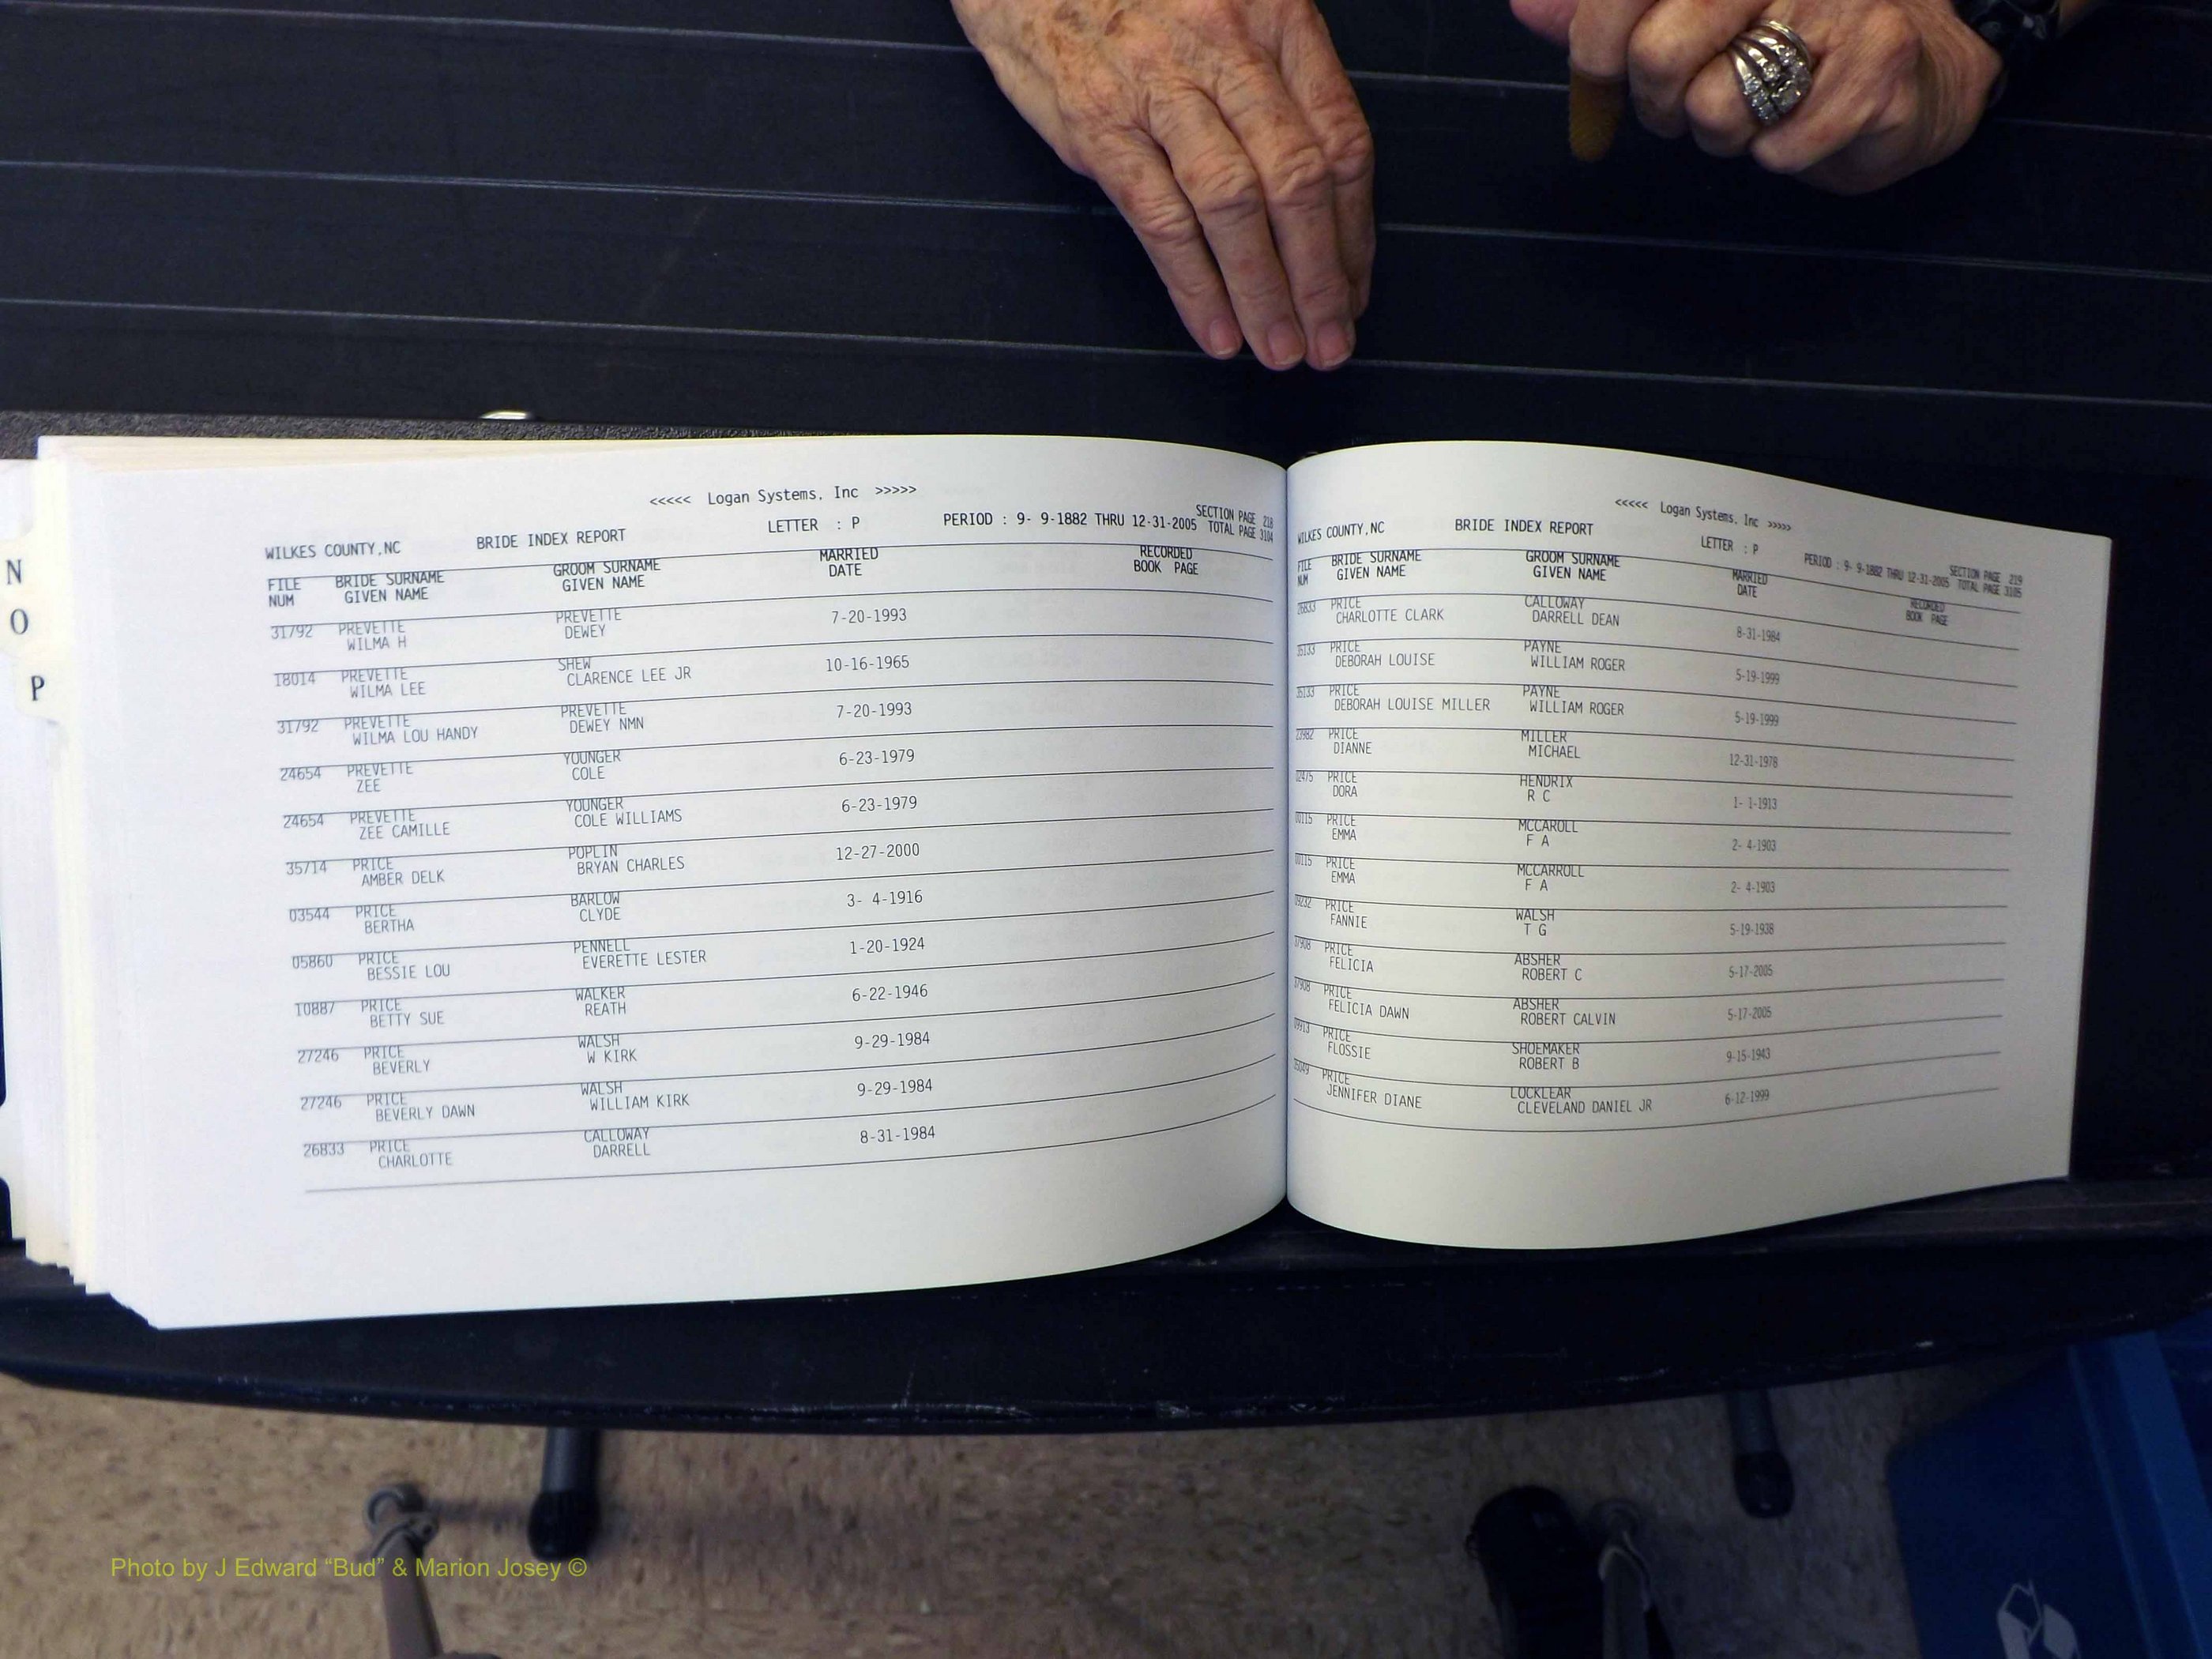 N
O
P
<<<<< Logan Systems, Inc >>>>>
SECTION PAGE 218
WILKES COUNTY,NC BRIDE INDEX REPORT LETTER : P PERIOD : 9- 9-1882 THRU 12-31-2005 TOTAL PAGE 3104
FILE BRIDE SURNAME GROOM SURNAME MARRIED RECORDED
NUM GIVEN NAME GIVEN NAME DATE BOOK PAGE
31792 PREVETTE PREVETTE 7-20-1993
WILMA H DEWEY
18014 PREVETTE SHEW 10-16-1965
WILMA LEE CLARENCE LEE JR
31792 PREVETTE PREVETTE 7-20-1993
WILMA LOU HANDY DEWEY NMN
24654 PREVETTE YOUNGER 6-23-1979
ZEE COLE
24654 PREVETTE YOUNGER 6-23-1979
ZEE CAMILLE COLE WILLIAMS
35714 PRICE POPLIN 12-27-2000
AMBER DELK BRYAN CHARLES
03544 PRICE BARLOW 3- 4-1916
BERTHA CLYDE
05860 PRICE PENNELL 1-20-1924
BESSIE LOU EVERETTE LESTER
10887 PRICE WALKER 6-22-1946
BETTY SUE REATH
27246 PRICE WALSH 9-29-1984
BEVERLY W KIRK
27246 PRICE WALSH 9-29-1984
BEVERLY DAWN WILLIAM KIRK
26833 PRICE CALLOWAY 8-31-1984
CHARLOTTE DARRELL
<<<<< Logan Systems, Inc >>>>>
SECTION PAGE 219
WILKES COUNTY,NC BRIDE INDEX REPORT LETTER : P PERIOD : 9- 9-1882 THRU 12-31-2005 TOTAL PAGE 3105
FILE BRIDE SURNAME GROOM SURNAME MARRIED RECORDED
NUM GIVEN NAME GIVEN NAME DATE BOOK PAGE
26833 PRICE CALLOWAY 8-31-1984
CHARLOTTE CLARK DARRELL DEAN
PRICE PAYNE 5-19-1999
DEBORAH LOUISE WILLIAM ROGER
PRICE PAYNE 5-19-1999
DEBORAH LOUISE MILLER WILLIAM ROGER
PRICE MILLER 12-31-1978
DIANNE MICHAEL
PRICE HENDRIX 1- 1-1913
DORA R C
00115 PRICE MCCAROLL 2- 4-1903
EMMA F A
00115 PRICE MCCARROLL 2- 4-1903
EMMA F A
PRICE WALSH 5-19-1938
FANNIE T G
PRICE ABSHER 5-17-2005
FELICIA ROBERT C
PRICE ABSHER 5-17-2005
FELICIA DAWN ROBERT CALVIN
PRICE SHOEMAKER 9-15-1943
FLOSSIE ROBERT B
PRICE LOCKLEAR 6-12-1999
JENNIFER DIANE CLEVELAND DANIEL JR
Photo by J Edward “Bud” & Marion Josey ©